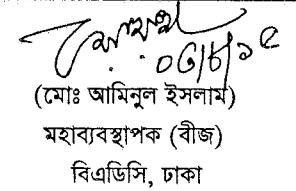 ০৩/৮/১৫
(মোঃ আমিনুল ইসলাম)
মহাব্যবস্থাপক (বীজ)
বিএডিসি, ঢাকা